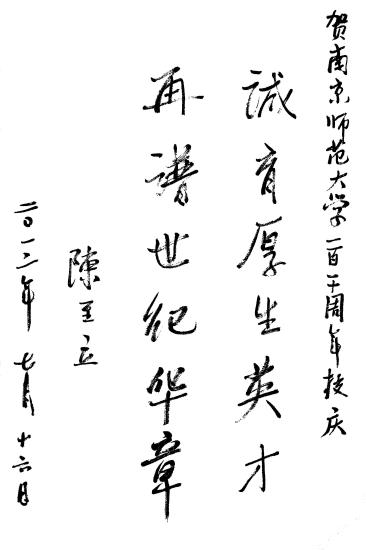 贺南京师范大学一百一十周年校庆
誠育厚生英才
再谱世纪华章
陳至立
二〇一二年七月十六日